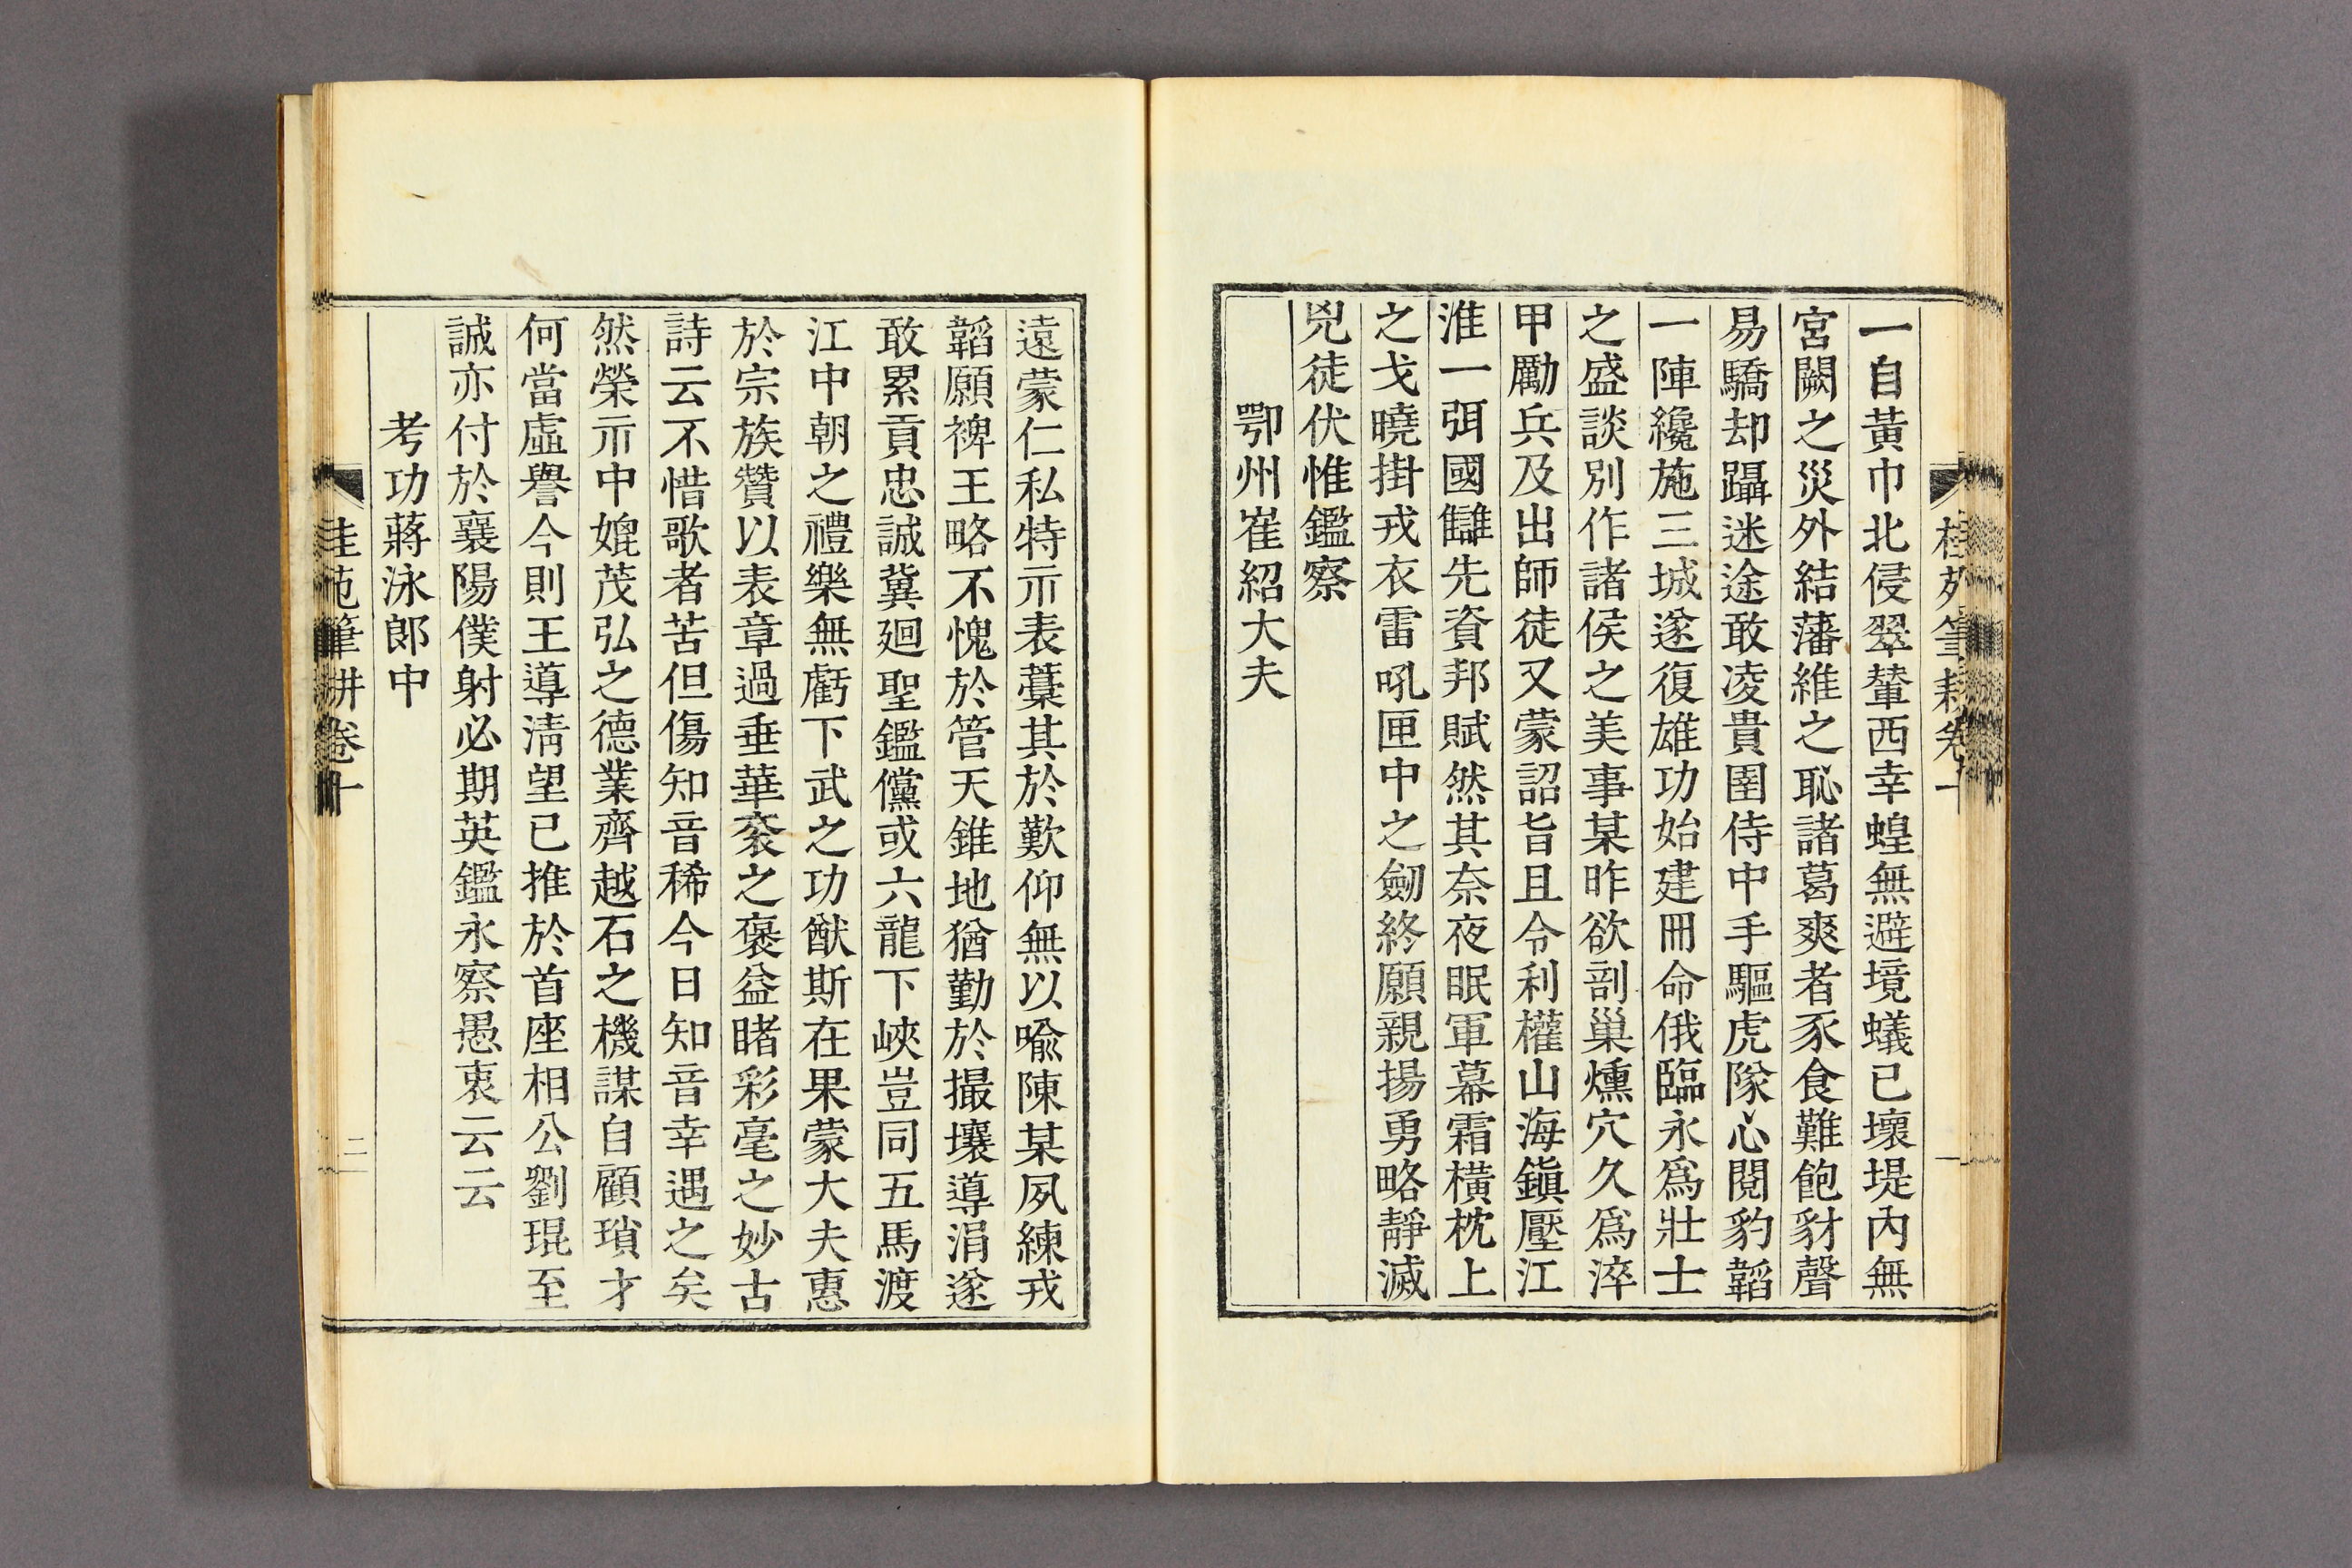 桂苑筆耕卷十
一
一自黃巾北侵翠輦西幸蝗無避境蟻已壞堤內無
宮闕之災外結藩維之恥諸葛爽者豕食難飽豺聲
易驕却躡迷途敢凌貴圉侍中手驅虎隊心閱豹韜
一陣纔施三城遂復雄功始建冊命俄臨永爲壯士
之盛談別作諸侯之美事某昨欲剖巢燻穴久爲淬
甲勵兵及出師徒又蒙詔旨且令利權山海鎭壓江
淮一弭國讎先資邦賦然其奈夜眠軍幕霜橫枕上
之戈曉掛戎衣雷吼匣中之劒終願親揚勇略靜滅
兇徒伏惟鑑察
鄂州崔紹大夫
遠蒙仁私特示表藁其於歎仰無以喩陳某夙練戎
韜願裨王略不愧於管天錐地猶勤於撮壤導涓遂
敢累貢忠誠冀廻聖鑑儻或六龍下峽豈同五馬渡
江中朝之禮樂無虧下武之功猷斯在果蒙大夫惠
於宗族贊以表章過垂華袞之褒益睹彩毫之妙古
詩云不惜歌者苦但傷知音稀今日知音幸遇之矣
然榮示中媲茂弘之德業齊越石之機謀自顧瑣才
何當虛譽今則王導淸望已推於首座相公劉琨至
誠亦付於襄陽僕射必期英鑑永察愚衷云云
考功蔣泳郎中
桂苑筆耕卷十
二